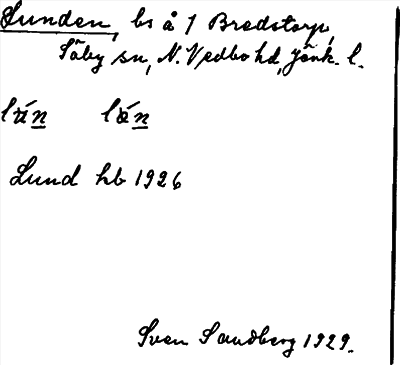 Lunden, bs å 1 Bredstorp,
Säby sn, N. Vedbo hd, Jönk. l.
Lund hb 1926
Sven Sandberg 1929.